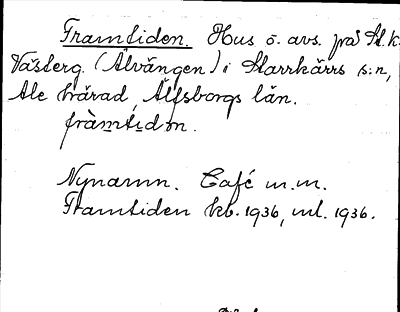 Framtiden. Hus o. avs. på St. k.
Västerg. (Älvängen) i Starrkärrs s:n,
Ale härad, Älfsborgs län.
fràmtıdɷn.
Nynamn. Café m.m.
Framtiden kb. 1936, ml. 1936.